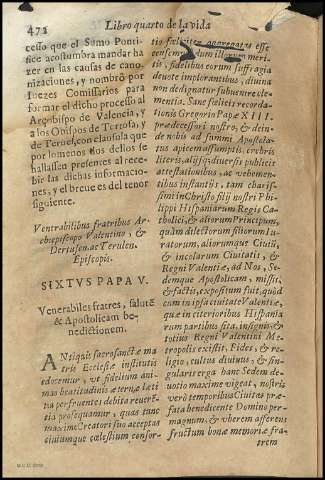 472 Libro quarto de la vida
cesso que el Sumo Ponti-
fice acostumbra mandar ha
zer en las causas de cano-
nizaciones, y nombrò por
Iuezes Comissarios para
formar el dicho processo al
Arçobispo de Valencia, y
a los Obispos de Tortosa, y
de Teruel, con clausula que
por lo menos dos dellos se
hallassen presentes al rece-
bir las dichas informacio-
nes, y el breue es del tenor
siguiente.
Venerabilibus fratribus Ar-
chiepiscopo Valentino, &
Dertusen. ac Terulen.
Episcopis.
SIXTVS PAPA V.
Venerabiles fratres, salutē
& Apostolicam be-
nedictionem.
ANtiquis sacrosanctæ ma
tris Ecclesiæ institutis
edocemur, vt fidelium ani-
mas beatitudinis æternæ læti
tia perfruentes debita reueren
tia prosequamur, quas tunc
maximè Creatori suo acceptas
ciuiumque cælestium consor-
tio fœliciter aggregatas esse
censemus, dum illorum meri-
tis, fidelibus eorum suffragia
deuotè implorantibus, diuina
non dedignatur subuenire cle-
mentia. Sanè fœlicis recorda-
tionis Gregorio Papæ XIII.
prædecessori nostro, & dein-
de nobis ad summi Apostola-
tus apicem assumptis crebris
literis, alijsq; diuersis publicis
attestationibus, ac vehemen-
tibus instantijs, tam charis-
simi in Christo filij nostri Phi-
lippi Hispaniarum Regis Ca-
tholici, & aliorum Principum,
quàm dilectorum filiorum Iu-
ratorum, aliorumque Ciuiū,
& incolarum Ciuitatis, &
Regni Valentiæ, ad Nos, Se-
demque Apostolicam, missis,
& factis, expositum fuit, quòd
cum in ipsa ciuitate Valentiæ,
quæ in citerioribus Hispania
rum partibus sita, insignis, &
totius Regni Valentini Me-
tropolis existit, Fides, & re-
ligio, cultus diuinus, & sin-
gularis erga hanc Sedem de-
uotio maximè vigeat, nostris
verò temporibus Ciuitas præ-
fata benedicente Domino per-
magnum, & vberem afferens
fructum bonæ memoriæ fra-
trem